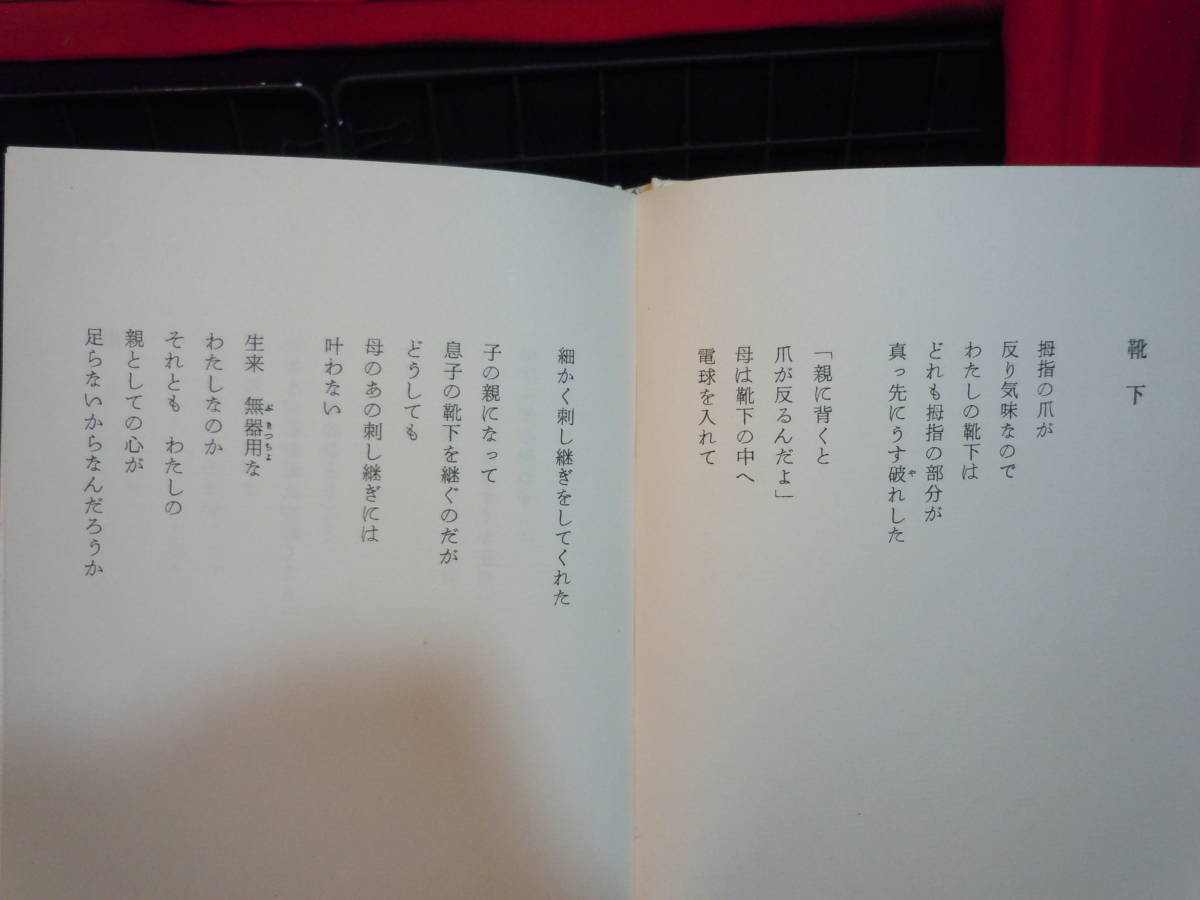 靴下
拇指の爪が
反り気味なので
わたしの靴下は
どれも拇指の部分が
真っ先にうす破れした
「親に背くと
爪が反るんだよ」
母は靴下の中へ
電球を入れて
細かく刺し継ぎをしてくれた
子の親になって
息子の靴下を継ぐのだが
どうしても
母のあの刺し継ぎには
叶わない
生来　無器用な
わたしなのか
それとも　わたしの
親としての心が
足らないからなんだろうか